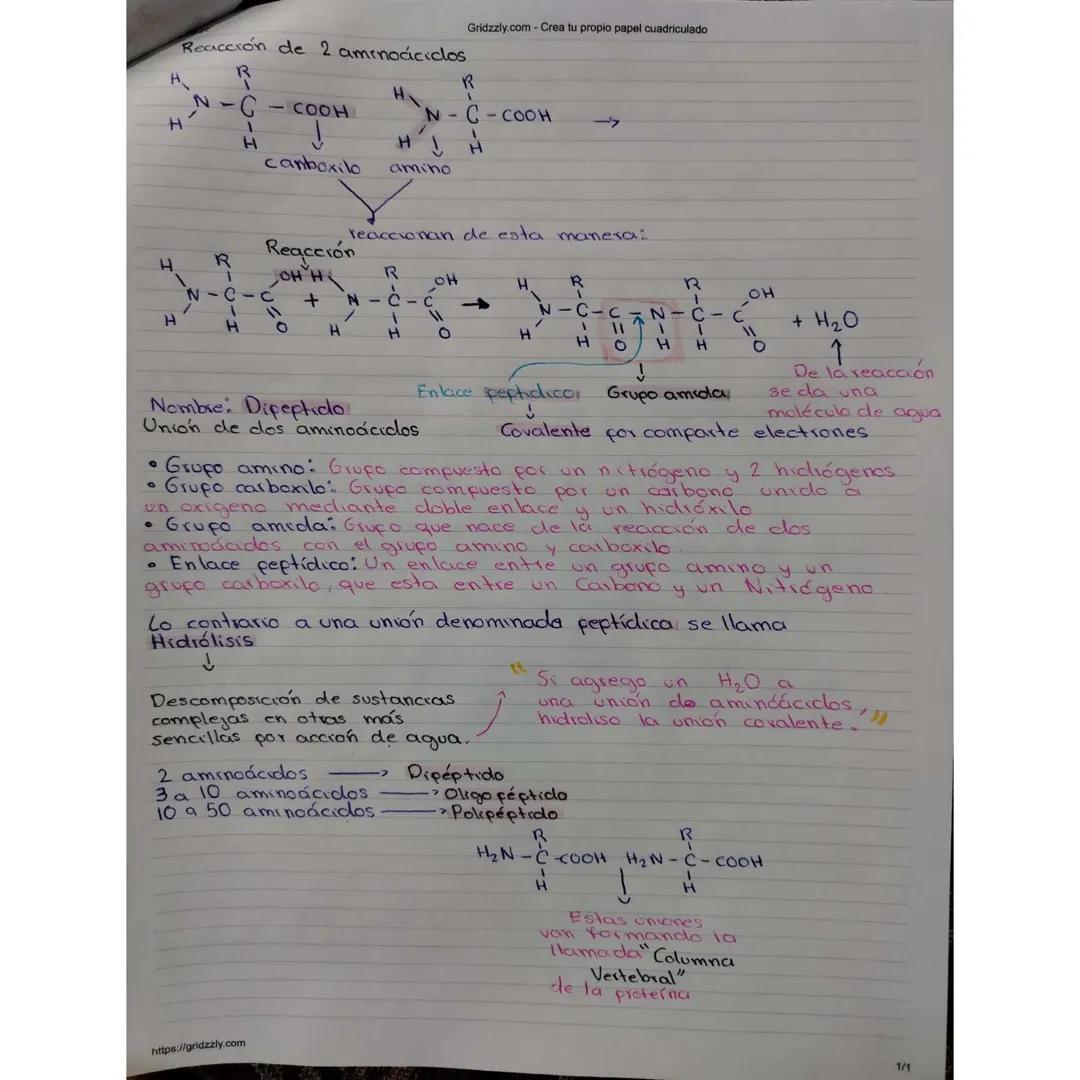 Gridzzly.com - Crea tu propio papel cuadriculado
Reacción de 2 aminoácidos
H R H R
N - C - COOH N - C - COOH →
H H H H
carboxilo amino
reaccionan de esta manera:
Reacción
H R OH H R OH H R R OH
N - C - C + N - C - C → N - C - C - N - C - C + H₂O
H H O H H O H H O H H O
De la reacción
Enlace peptídico Grupo amida se da una
Nombre: Dipeptido molécula de agua
Unión de dos aminoácidos Covalente por comparte electrones
• Grupo amino: Grupo compuesto por un nitrógeno y 2 hidrógenos
• Grupo carboxilo: Grupo compuesto por un carbono unido a
un oxígeno mediante doble enlace y un hidróxilo
• Grupo amida: Grupo que nace de la reacción de dos
aminoácidos con el grupo amino y carboxilo.
• Enlace peptídico: Un enlace entre un grupo amino y un
grupo carboxilo, que esta entre un Carbono y un Nitrógeno
Lo contrario a una unión denominada peptídica se llama
Hidrólisis
" Si agrego un H₂O a
Descomposición de sustancias una unión de aminoácidos,
complejas en otras más hidroliso la unión covalente. "
sencillas por acción de agua.
2 aminoácidos → Dipéptido
3 a 10 aminoácidos → Oligopéptido
10 a 50 aminoácidos → Polipéptido
R R
H₂N - C - COOH H₂N - C - COOH
H H
Estas uniones
van formando la
llamada "Columna
Vertebral"
de la proteína
https://gridzzly.com
1/1